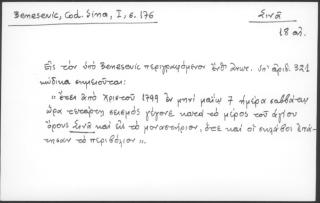 Benesenic, Cod. Sina, I, σ. 176
Σινᾶ
18 αἰ.
Εἰς τὸν ὑπὸ Benesenic περιγραφόμενον ὑπ' ἀριθ. 321
κώδικα σημειοῦται:
"ἔτει ἀπὸ Χριστοῦ 1799 ἐν μηνὶ μαΐῳ 7 ἡμέρᾳ σαββάτῳ
ὥρᾳ τετάρτῃ σεισμὸς γέγονε κατὰ τὸ μέρος τοῦ ἁγίου
ὄρους Σινᾶ καὶ εἰς τὸ μοναστήριον, ὅτε καὶ οἱ σκλάβοι ἐπά-
τησαν τὸ περιβόλιον".